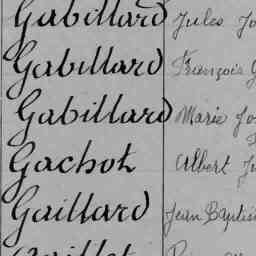 Gabillard Jules
Gabillard François
Gabillard Marie
Gachot Albert
Gaillard Jean Baptis